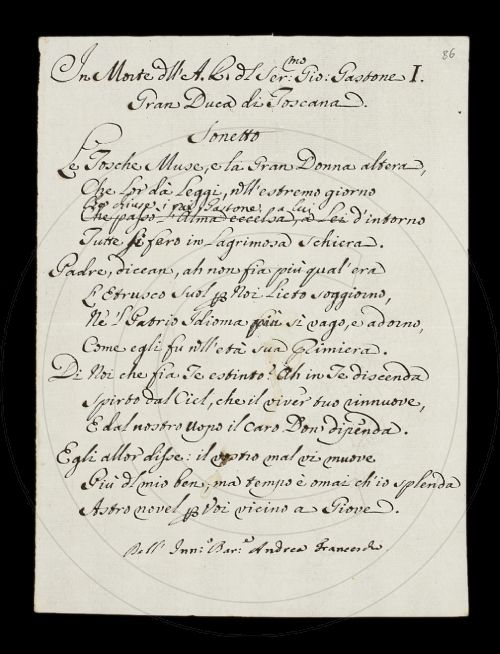 86
In Morte dll' A. R. dl Ser:mo Gio: Gastone I.
Gran Duca di Toscana.
Sonetto
Le Tosche Muse, e la Gran Donna altera,
Che lor dà Leggi, nell'estremo giorno
Che chiuse i rai Gastone, a lui
Che passò l'Alma eccelsa, a Lei d'intorno
Tutte si fero in lagrimosa schiera.
Padre, dicean, ah non fia più qual'era
L'Etrusco Suol per Noi Lieto soggiorno,
Nè 'l Patrio Idioma più sì vago, e adorno,
Come egli fù nell'età sua Primiera.
Di Noi che fia Te estinto? Ah in Te discenda
Spirto dal Ciel, che il viver tuo rinnuove,
E dal nostro uopo il caro Don dipenda.
Egli allor disse: il vostro mal vi muove
Più dl mio ben; ma tempo è omai ch'io splenda
Astro novel per Voi vicino a Giove.
Dell' Inn:o Bar:e Andrea Franceschi